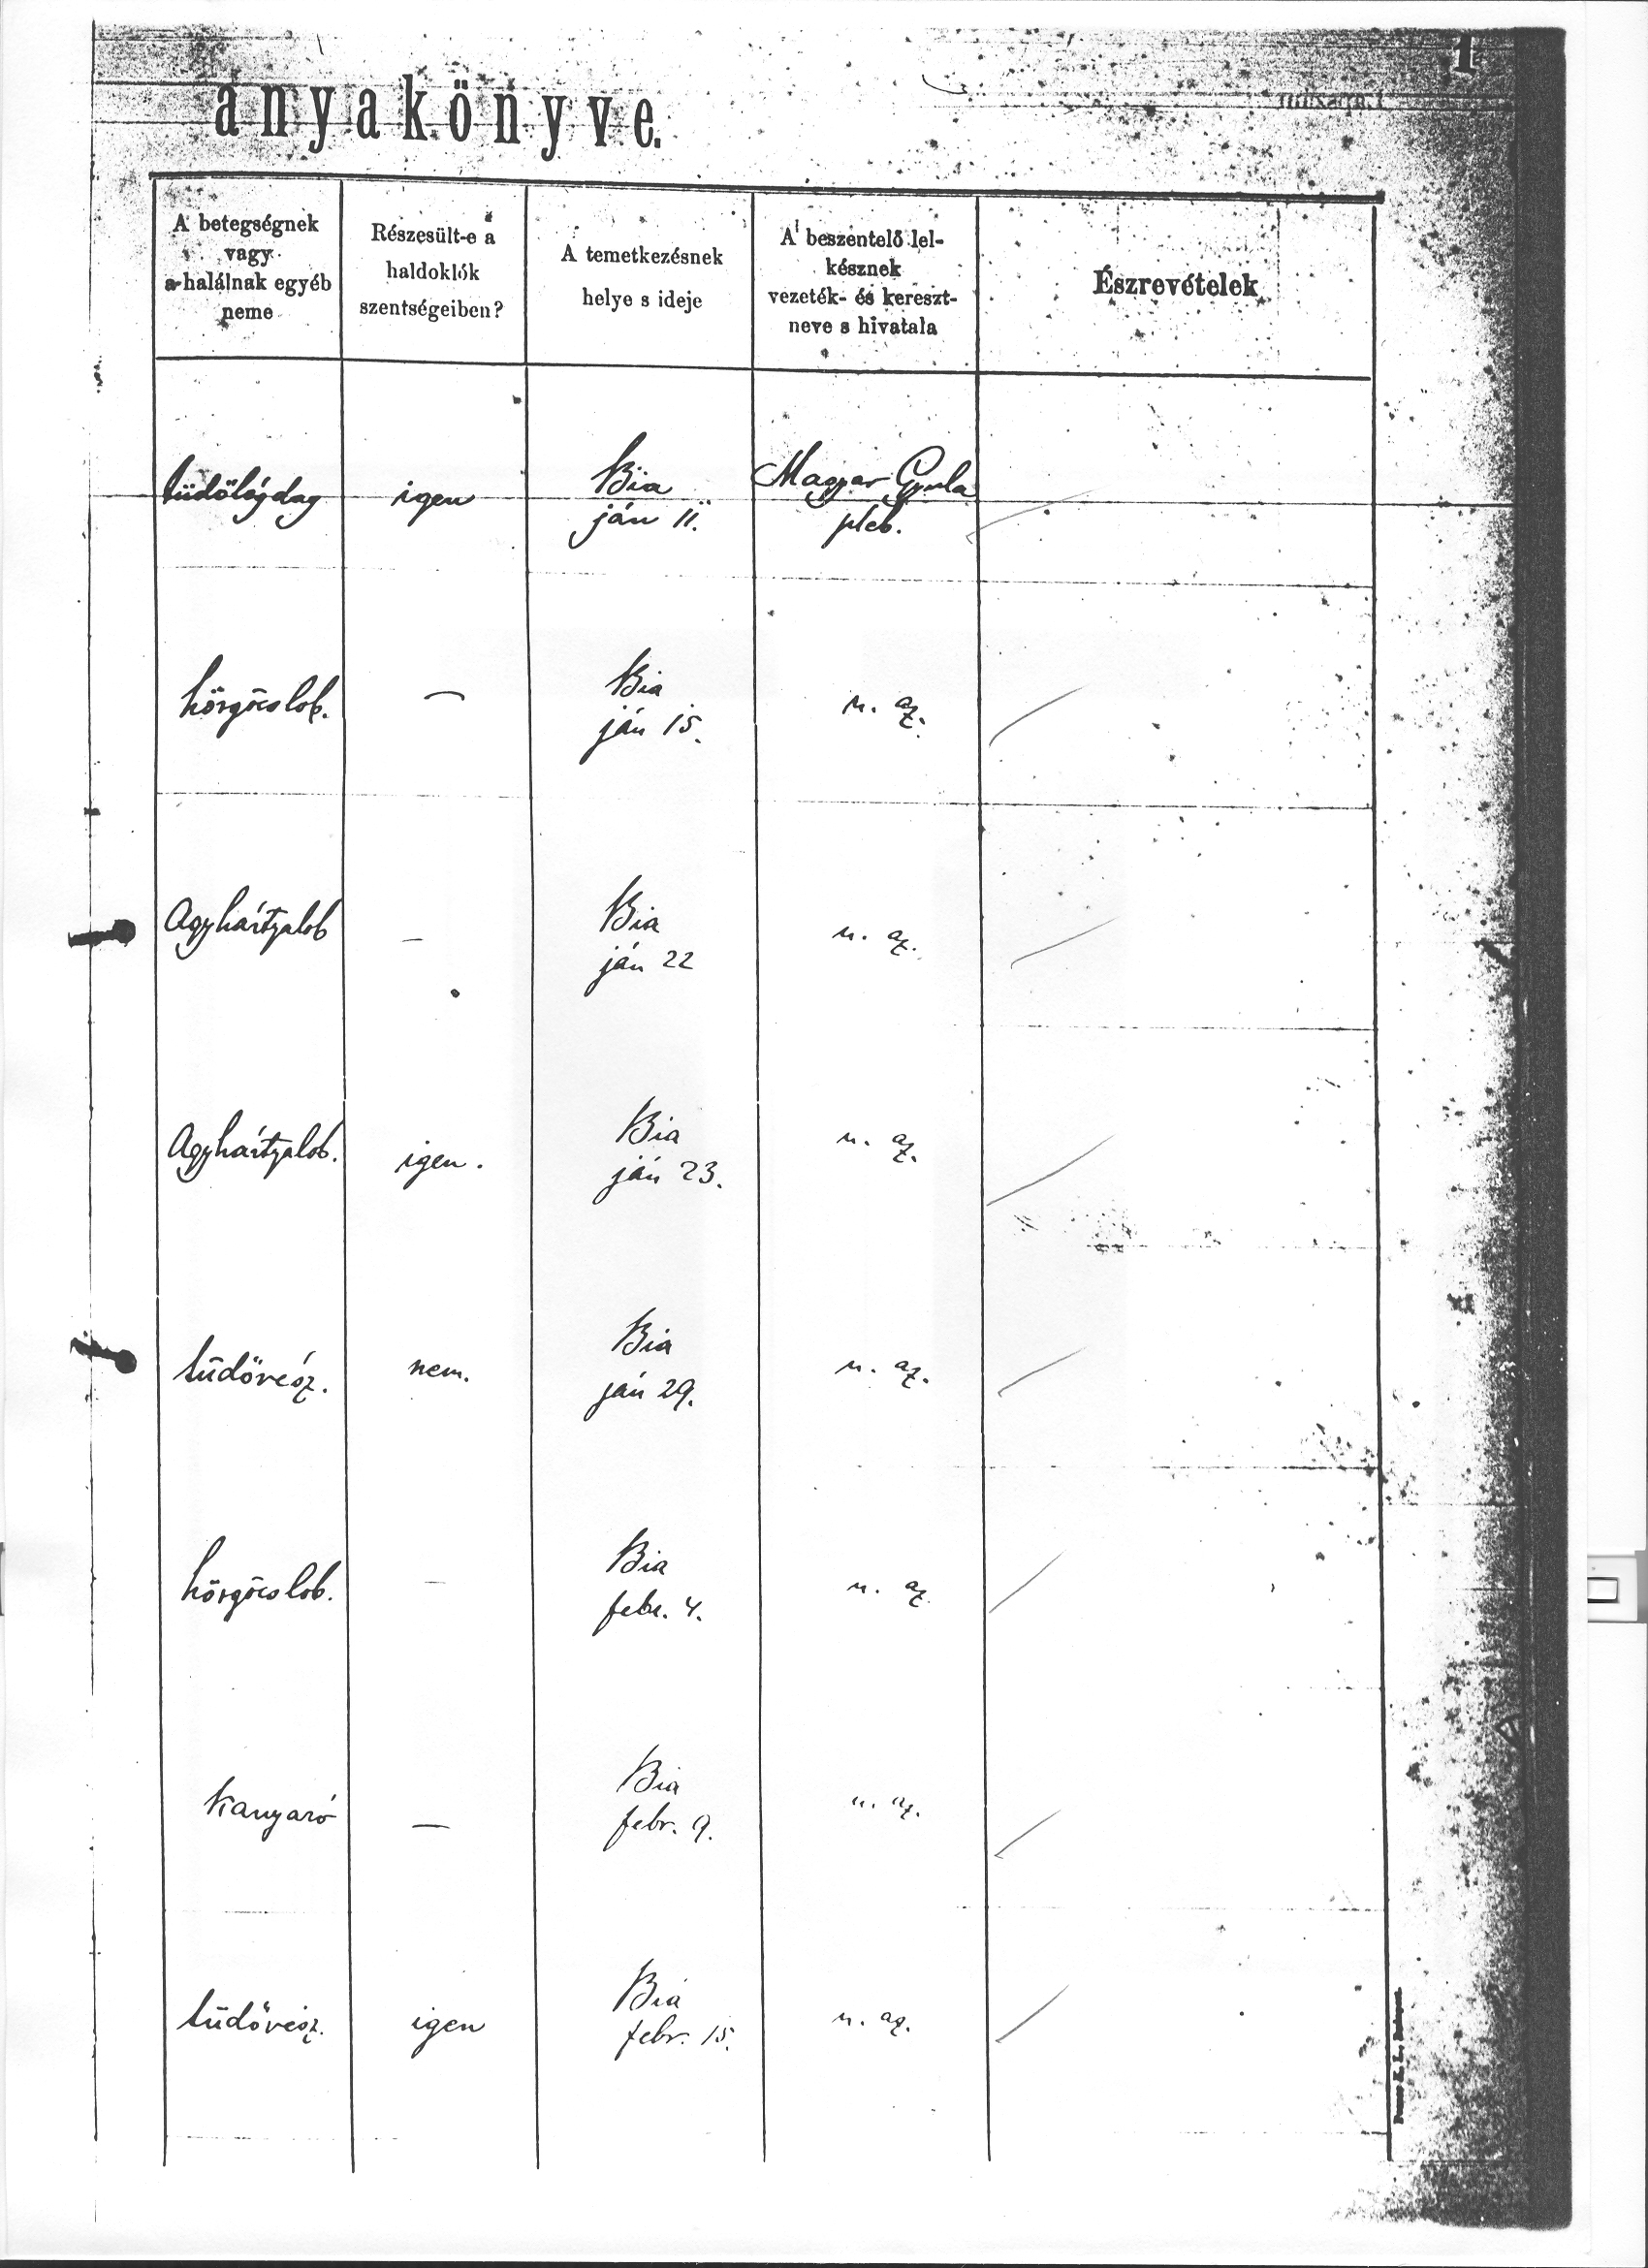 1
anyakönyve.
A betegségnek
vagy
a halálnak egyéb
neme
Részesült-e a
haldoklók
szentségeiben?
A temetkezésnek
helye s ideje
A beszentelő lel-
késznek
vezeték- és kereszt-
neve s hivatala
Észrevételek
tüdőlégdag
igen
Bia
ján 11.
Magyar Gyula
pleb.
hörgőcslob.
—
Bia
ján 15.
u. az.
Agyhártyalob
—
Bia
ján 22
u. az.
Agyhártyalob.
igen.
Bia
ján 23.
u. az.
tüdővész.
nem.
Bia
ján 29.
u. az.
hörgőcslob.
—
Bia
febr. 4.
u. az
Kanyaró
—
Bia
febr. 9.
u. az.
tüdővész.
igen
Bia
febr. 15.
u. az.